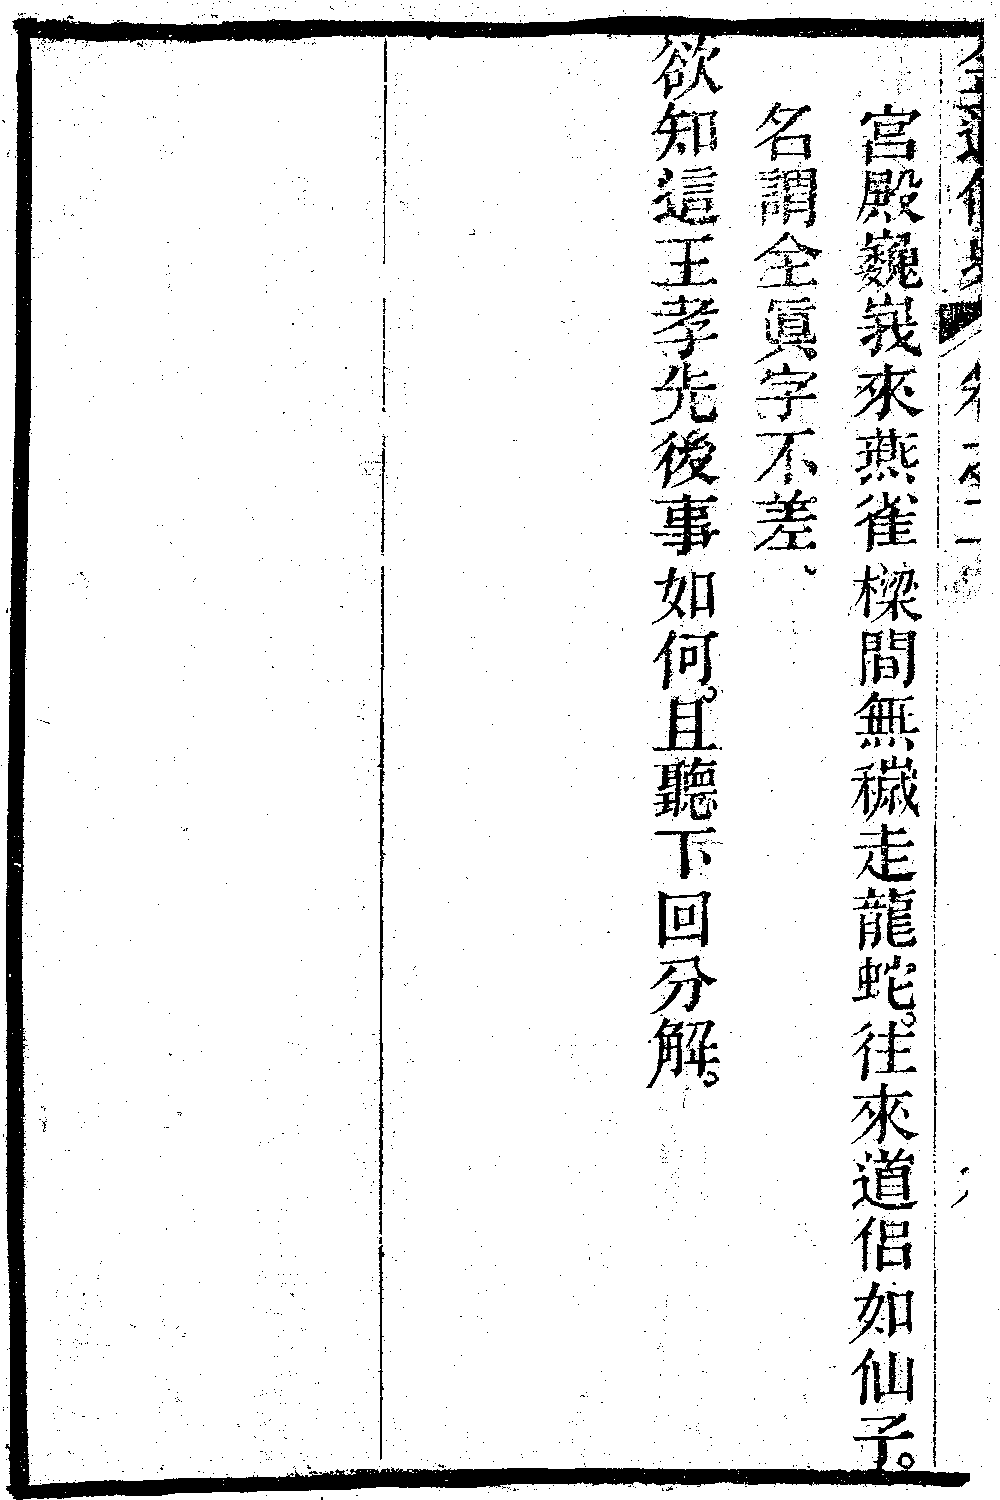 宮殿巍峩來燕雀樑間無穢走龍蛇。往來道侶如仙子。
名謂全眞字不差、
欲知這王孝先後事如何。且聽下回分解。